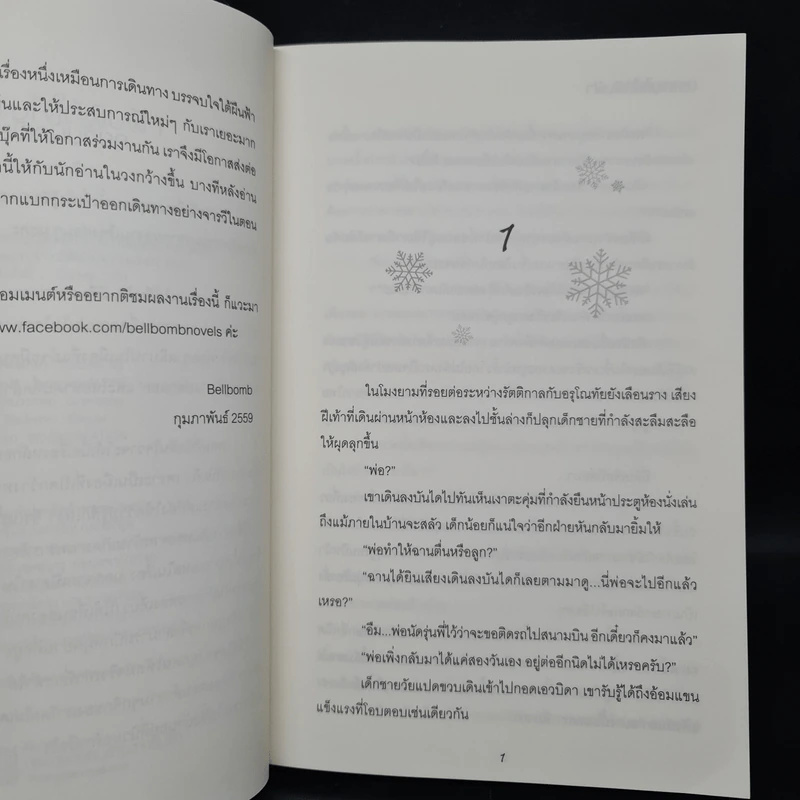 เรื่องหนึ่งเหมือนการเดินทาง บรรจบใจใต้ผืนฟ้า
และให้ประสบการณ์ใหม่ๆ กับเราเยอะมาก
บุ๊คที่ให้โอกาสร่วมงานกัน เราจึงมีโอกาสส่งต่อ
นี้ให้กับนักอ่านในวงกว้างขึ้น บางทีหลังอ่าน
ากแบกกระเป๋าออกเดินทางอย่างจารวีในตอน
อมเมนต์หรืออยากติชมผลงานเรื่องนี้ ก็แวะมา
ww.facebook.com/bellbombnovels ค่ะ
Bellbomb
กุมภาพันธ์ 2559
1
ในโมงยามที่รอยต่อระหว่างรัตติกาลกับอรุโณทัยยังเลือนราง เสียง
ฝีเท้าที่เดินผ่านหน้าห้องและลงไปชั้นล่างก็ปลุกเด็กชายที่กำลังสะลึมสะลือ
ให้ผุดลุกขึ้น
"พ่อ?"
เขาเดินลงบันไดไปทันเห็นเงาตะคุ่มที่กำลังยืนหน้าประตูห้องนั่งเล่น
ถึงแม้ภายในบ้านจะสลัว เด็กน้อยก็แน่ใจว่าอีกฝ่ายหันกลับมายิ้มให้
"พ่อทำให้ฉานตื่นหรือลูก?"
"ฉานได้ยินเสียงเดินลงบันไดก็เลยตามมาดู...นี่พ่อจะไปอีกแล้ว
เหรอ?"
"อืม...พ่อนัดรุ่นพี่ไว้ว่าจะขอติดรถไปสนามบิน อีกเดี๋ยวก็คงมาแล้ว"
"พ่อเพิ่งกลับมาได้แค่สองวันเอง อยู่ต่ออีกนิดไม่ได้เหรอครับ?"
เด็กชายวัยแปดขวบเดินเข้าไปกอดเอวบิดา เขารับรู้ได้ถึงอ้อมแขน
แข็งแรงที่โอบตอบเช่นเดียวกัน
1